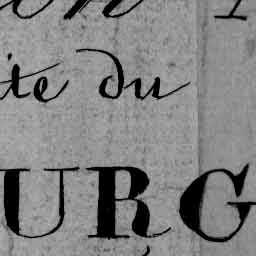 on
ite du
URG